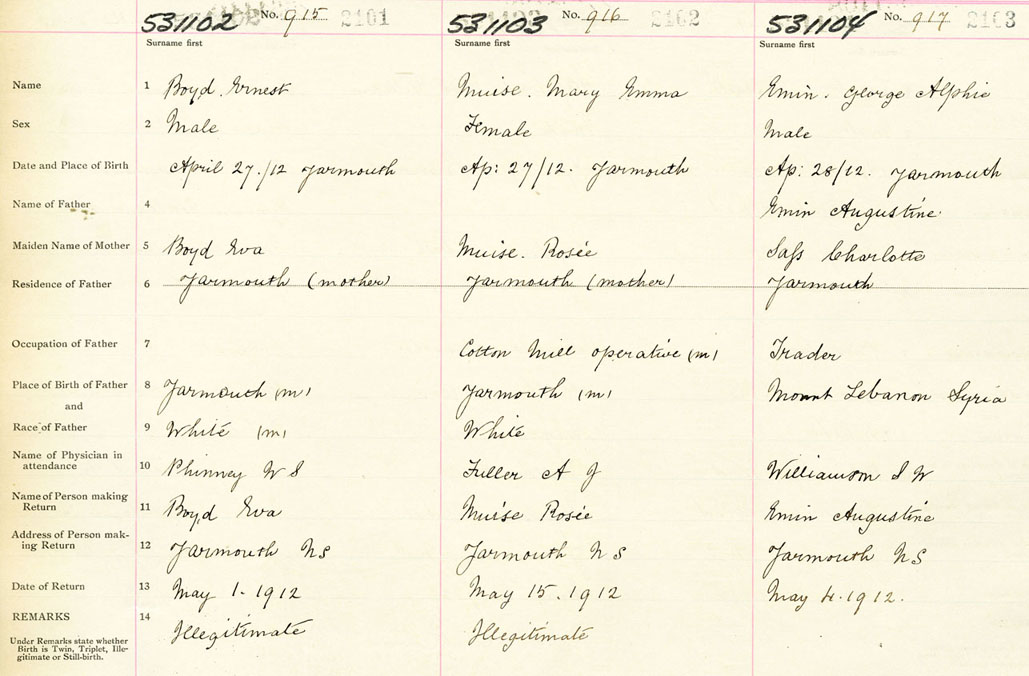 531102 No. 915 2101 531103 No. 916 2102 531104 No. 917 2103
Surname first Surname first Surname first
Name 1 Boyd. Ernest Muise. Mary Emma Emin. George Alphie
Sex 2 Male Female Male
Date and Place of Birth April 27./12 Yarmouth Ap: 27/12. Yarmouth Ap: 28/12. Yarmouth
Name of Father 4 Emin Augustine
Maiden Name of Mother 5 Boyd Eva Muise. Rosée Safs Charlotte
Residence of Father 6 Yarmouth (mother) Yarmouth (mother) Yarmouth
Occupation of Father 7 Cotton Mill operative (m) Trader
Place of Birth of Father 8 Yarmouth (m) Yarmouth (m) Mount Lebanon Syria
and
Race of Father 9 White (m) White
Name of Physician in
attendance 10 Phinney W S Fuller A J Williamson S W
Name of Person making
Return 11 Boyd Eva Muise Rosée Emin Augustine
Address of Person mak-
ing Return 12 Yarmouth NS Yarmouth N S Yarmouth NS
Date of Return 13 May 1. 1912 May 15. 1912 May 4. 1912.
REMARKS 14 Illegitimate Illegitimate
Under Remarks state whether
Birth is Twin, Triplet, Ille-
gitimate or Still-birth.